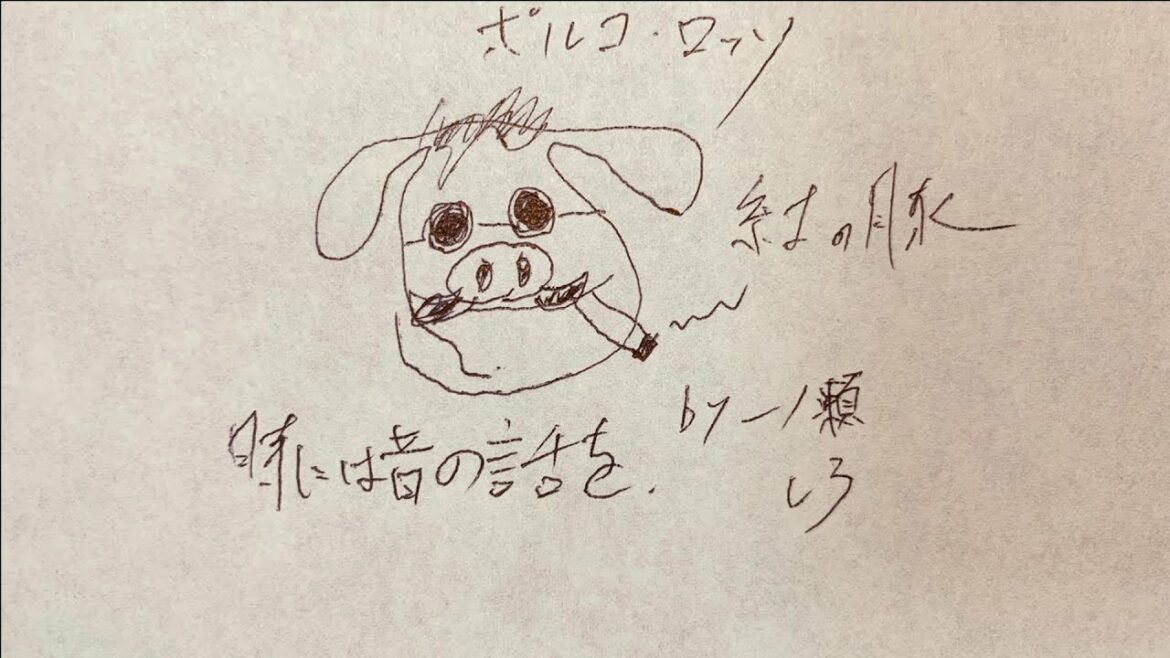 ポルコ・ロッソ
紅の豚
時には昔の話を.
by 一ノ瀬
しろ